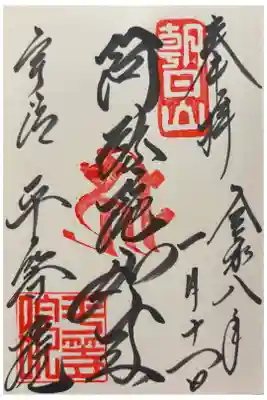 奉拝
令和八年
一月十
日
朝日山
阿弥陀如来
宇治 平等院
平等院